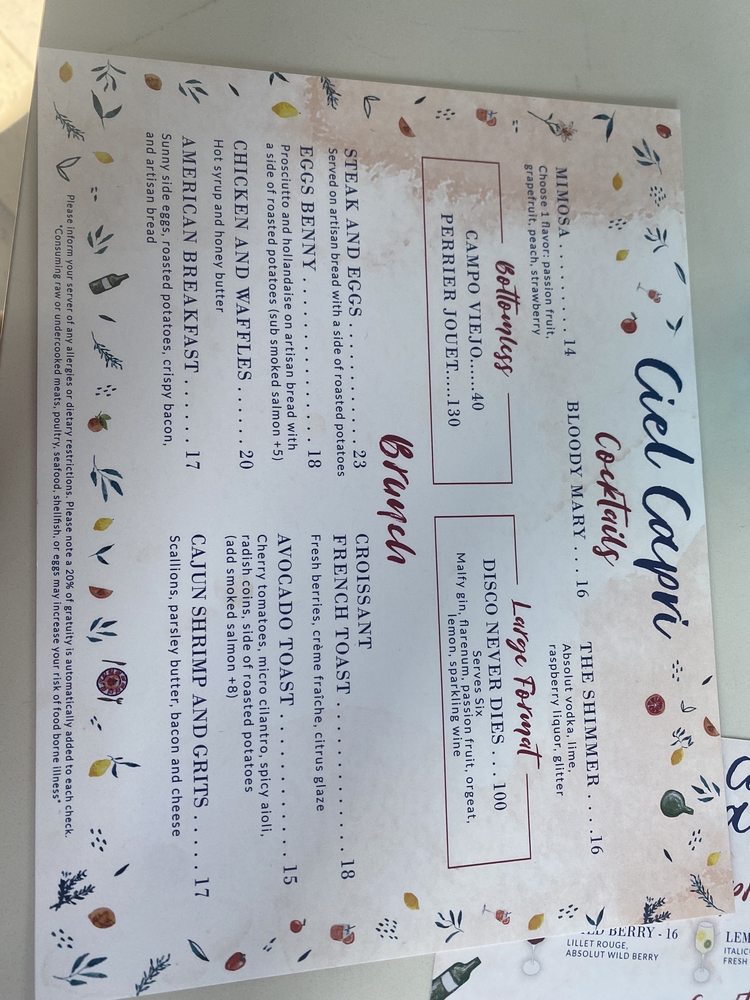 Ciel Capri
Cocktails
MIMOSA . . . . . . . . . . 14
Choose 1 flavor: passion fruit,
grapefruit, peach, strawberry
BLOODY MARY . . . . 16
THE SHIMMER . . . . .16
Absolut vodka, lime,
raspberry liquor, glitter
Bottomless
CAMPO VIEJO.......40
PERRIER JOUET.....130
Large Format
DISCO NEVER DIES . . . 100
Serves Six
Malfy gin, flarenum, passion fruit, orgeat,
lemon, sparkling wine
Brunch
STEAK AND EGGS . . . . . . . . . . . . . 23
Served on artisan bread with a side of roasted potatoes
EGGS BENNY . . . . . . . . . . . . . . . . 18
Prosciutto and hollandaise on artisan bread with
a side of roasted potatoes (sub smoked salmon +5)
CHICKEN AND WAFFLES . . . . . . 20
Hot syrup and honey butter
AMERICAN BREAKFAST . . . . . . 17
Sunny side eggs, roasted potatoes, crispy bacon,
and artisan bread
CROISSANT
FRENCH TOAST . . . . . . . . . . . . . 18
Fresh berries, crème fraîche, citrus glaze
AVOCADO TOAST . . . . . . . . . . . . . 15
Cherry tomatoes, micro cilantro, spicy aioli,
radish coins, side of roasted potatoes
(add smoked salmon +8)
CAJUN SHRIMP AND GRITS . . . . . 17
Scallions, parsley butter, bacon and cheese
Please inform your server of any allergies or dietary restrictions. Please note a 20% of gratuity is automatically added to each check.
*Consuming raw or undercooked meats, poultry, seafood, shellfish, or eggs may increase your risk of food borne illness*
BERRY - 16
LILLET ROUGE,
ABSOLUT WILD BERRY